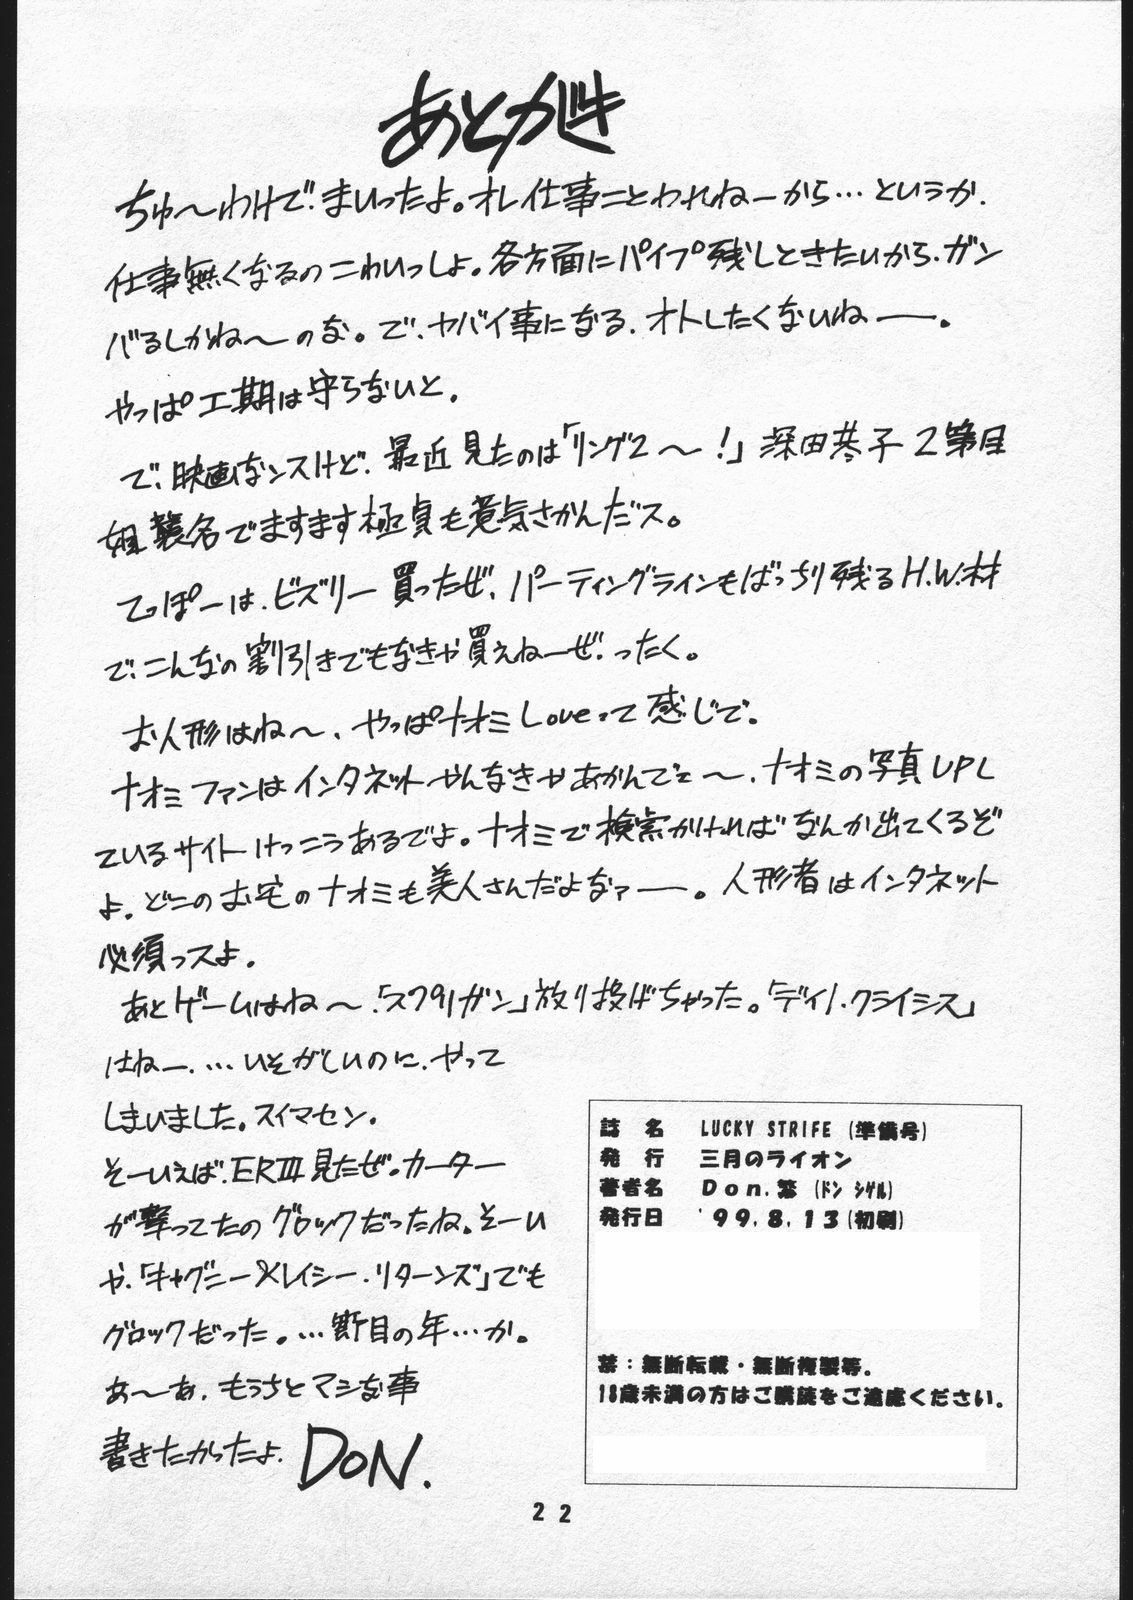 あとがき
ちゅ〜わけで、まいったよ。オレ仕事ことわれねーから…というか、
仕事無くなるのこわいっしょ。各方面にパイプ残しときたいから、ガン
バるしかね〜のな。で、ヤバイ事になる、オトしたくないねー。
やっぱ工期は守らないと。
で、映画なンスけど、最近見たのは「リング2〜!」深田恭子2
襲名でますます極貞も意気さかんだス。
てっぽーは、ビズリー買ったぜ、パーティングラインもばっちり残るH.W.材
で、こんなの割引きでもなきゃ買えねーぜ、ったく。
お人形はね〜、やっぱナオミLoveって感じで。
ナオミファンはインタネットやんなきゃあかんでェ〜、ナオミの写真UPし
ているサイトけっこうあるでよ。ナオミで検索かければなんか出てくるぞ
よ、どこのお宅のナオミも美人さんだよなァー。人形者はインタネット
必須っスよ。
あとゲームはね〜、「スプリガン」放り投げちゃった。「ディノ・クライシス」
はねー、…いそがしいのに、やって
しまいました。スイマセン。
そーいえば、ERⅢ見たぜ。カーター
が撃ってたのグロックだったね。そーい
や、「キャグニー&レイシー・リターンズ」でも
グロックだった。…の年…か。
あ〜あ、もうちとマシな事
書きたかったよ。DON.
誌　名　LUCKY STRIFE (準備号)
発　行　三月のライオン
著者名　Don.繁 (ドン シゲル)
発行日　'99.8.13(初刷)
禁：無断転載・無断複製等.
18歳未満の方はご購読をご遠慮ください.
22